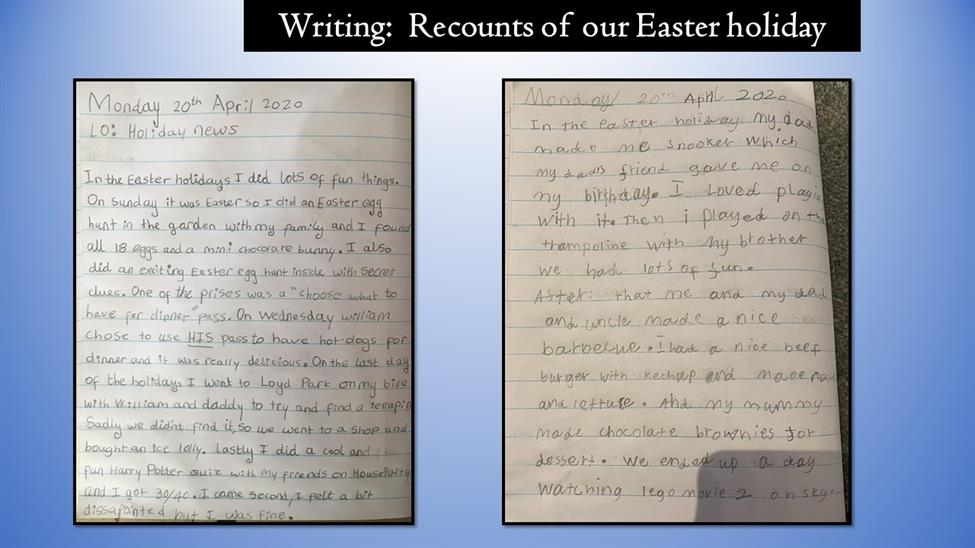 Writing: Recounts of our Easter holiday
Monday 20th April 2020
LO: Holiday news
In the Easter holidays I did lots of fun things.
On sunday it was Easter so I did an Easter egg
hunt in the garden with my family and I found
all 18 eggs and a mini chocolate bunny. I also
did an exciting Easter egg hunt inside with secret
clues. One of the prises was a "choose what to
have for dinner" pass. On Wednesday william
chose to use HIS pass to have hot-dogs for
dinner and it was really delicious. On the last day
of the holidays I went to Loyd Park on my bike
with William and daddy to try and find a terrapin
Sadly we didn't find it, so we went to a shop and
bought an ice lolly. Lastly I did a cool and
fun Harry Potter quiz with my friends on HouseParty
and I got 30/40. I came second, I felt a bit
dissapointed but I was fine.
Monday 20th April 2020
In the easter holiday my dad
made me snooker which
my dad's friend gave me on
my birthday. I loved
with it. Then i played on the
trampoline with my brother
we had lots of fun.
After that me and my dad
and uncle made a nice
barbecue. I had a nice beef
burger with kechup and
and lettuce. And my mummy
made chocolate brownies for
dessert. We ended up a day
watching lego movie 2 on sky